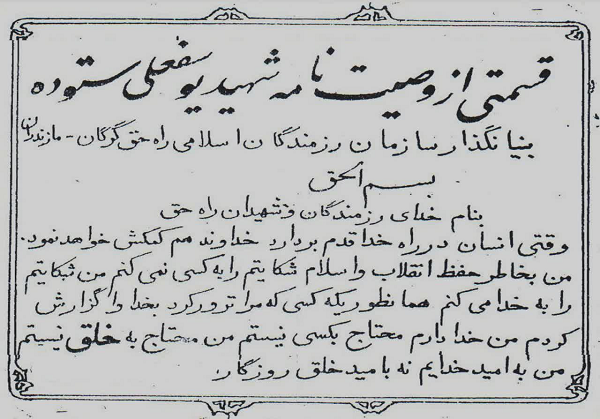 قسمتی از وصیت نامه شهید یوسفعلی ستوده
بنیانگذار سازمان رزمندگان اسلامی راه حق گرگان - مازندران
بسم الحق
بنام خدای رزمندگان و شهیدان راه حق
وقتی انسان در راه خدا قدم بردارد خداوند هم کمکش خواهد نمود.
من بخاطر حفظ انقلاب و اسلام شکایتم را به کسی نمی کنم من شکایتم
را به خدا می کنم همانطوریکه کسی که مرا ترور کرد بخدا واگزارش
کردم من خدا دارم محتاج بکسی نیستم من محتاج به خلق نیستم
من به امید خدایم نه بامید خلق روزگار.